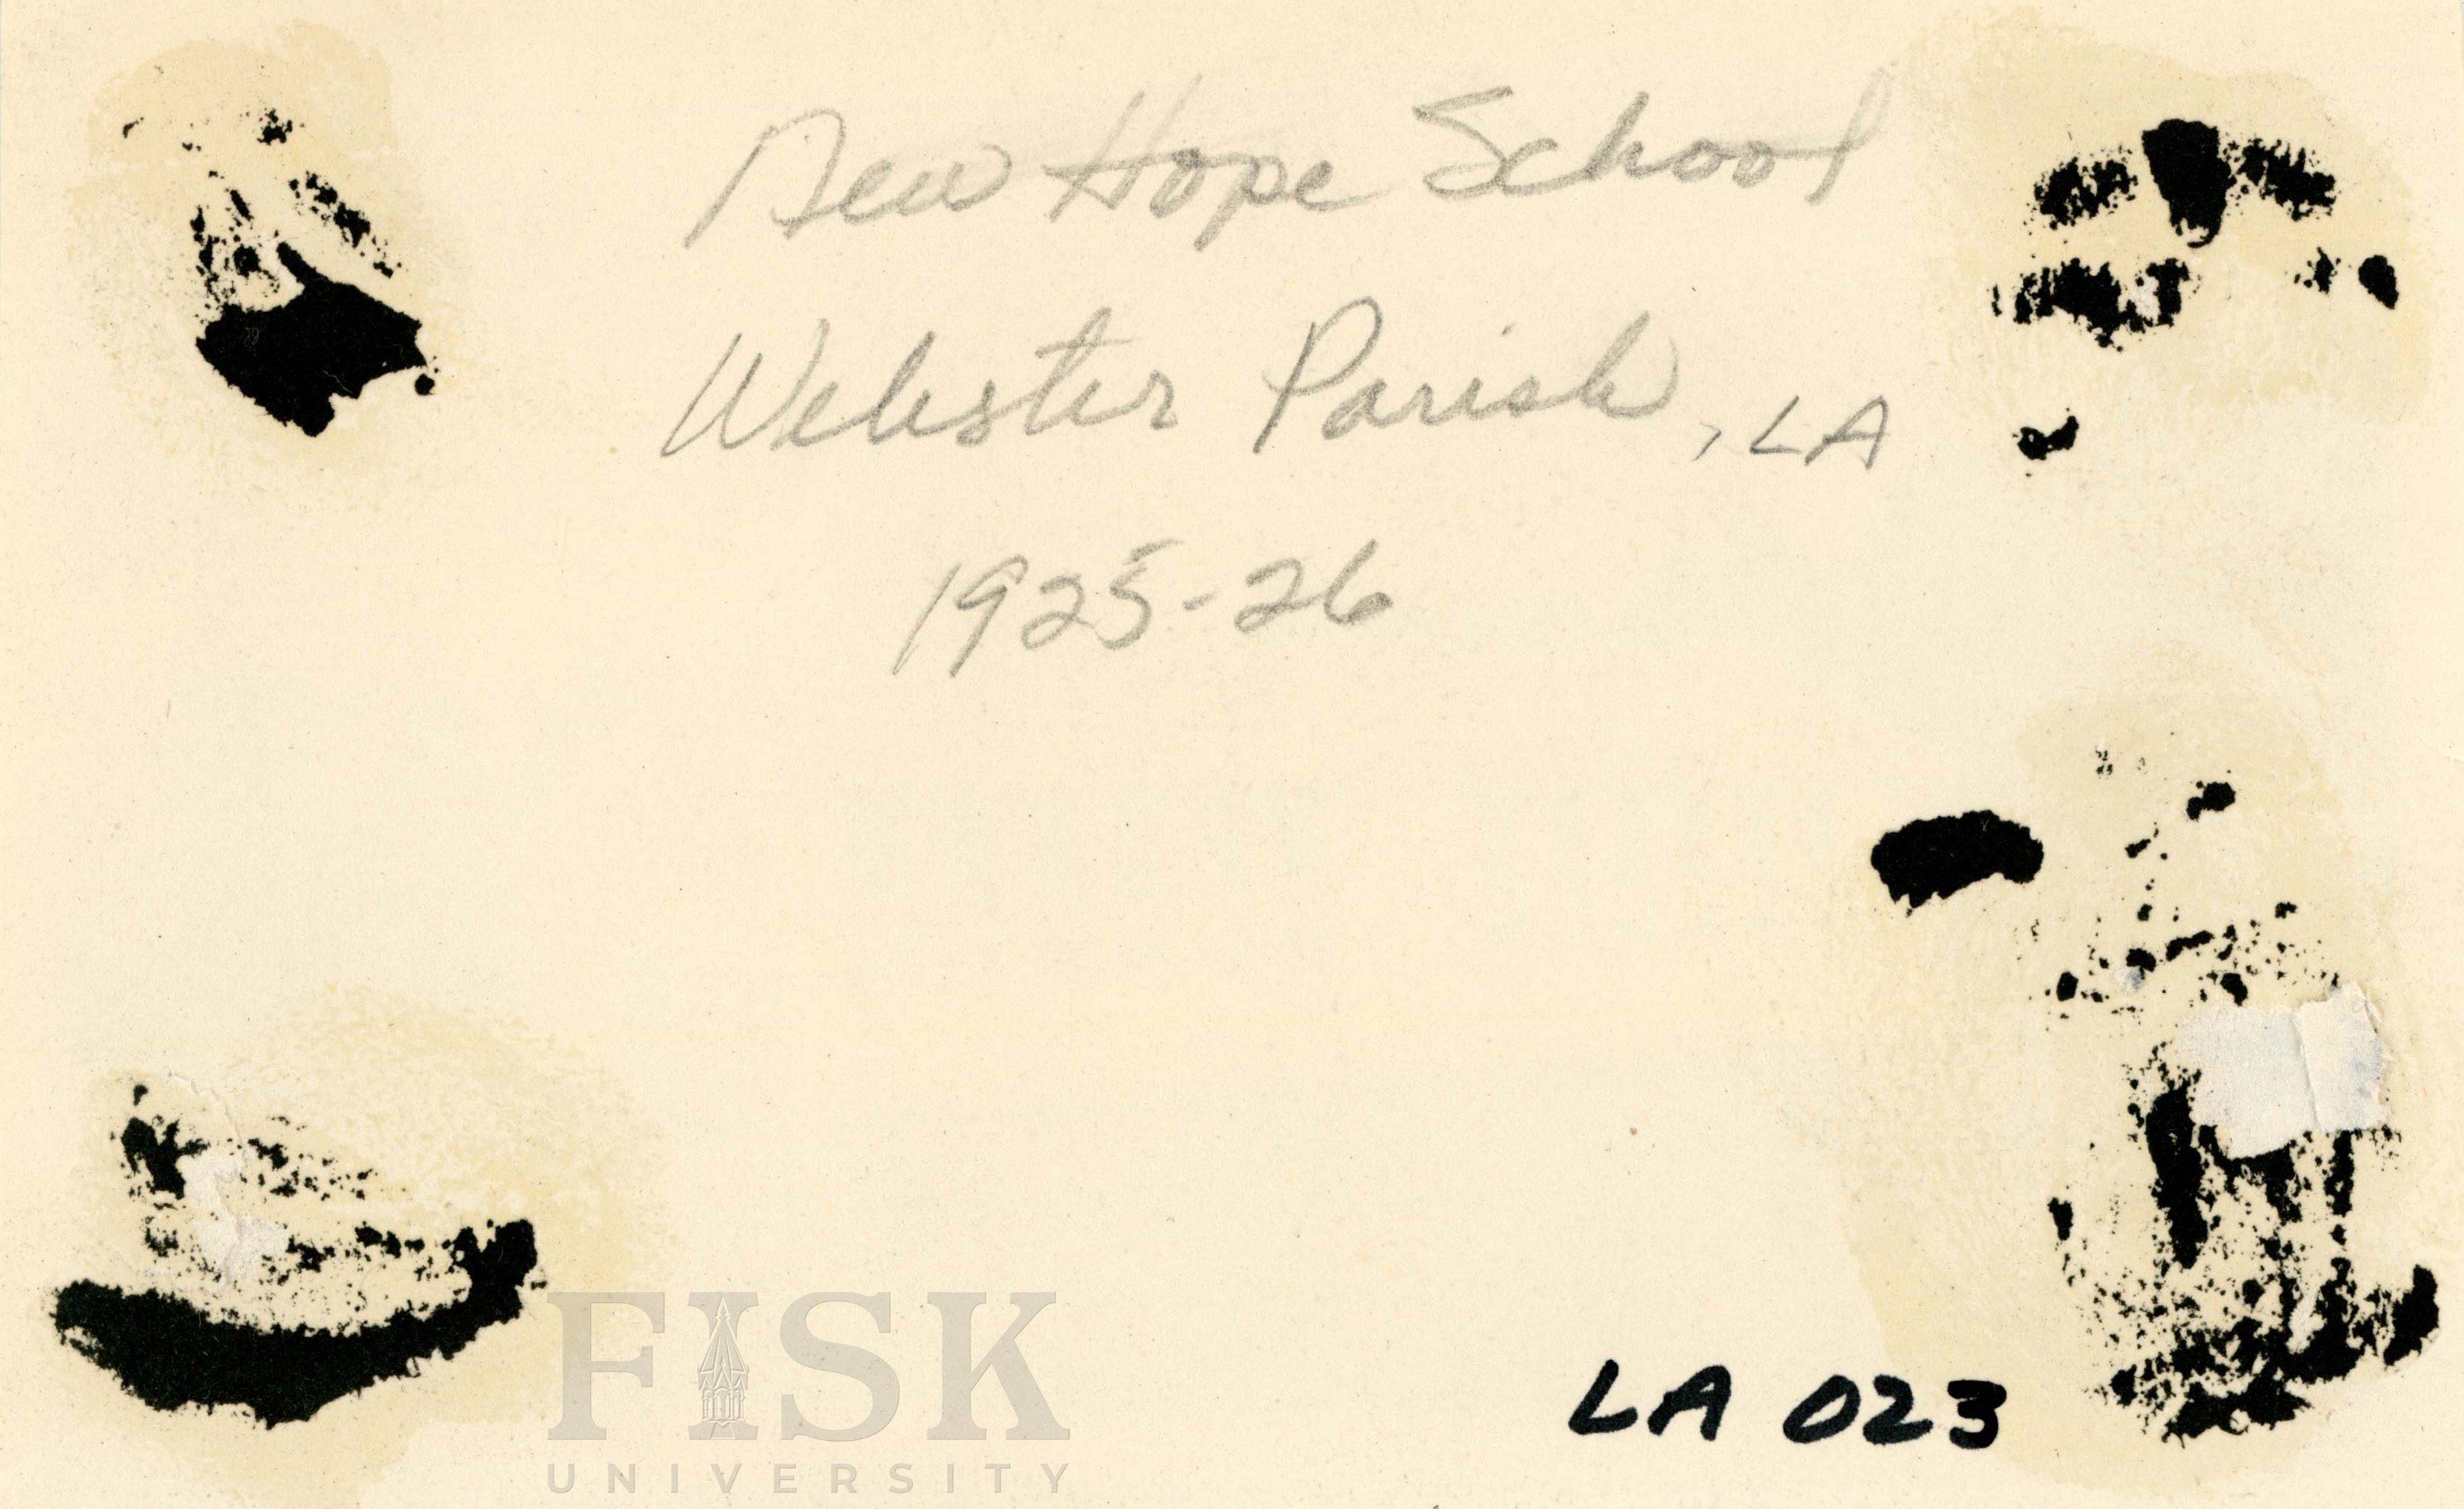 New Hope School
Webster Parish, LA
1925-26
LA 023
FISK
UNIVERSITY